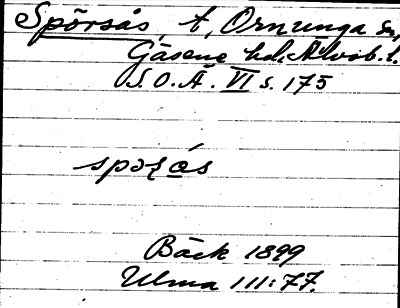 Spörsås, t, Ornunga sn,
Gäsene hd, Älvsb. l.
S. O. Ä. VI s. 175
Bäck 1899
Ulma 111:77.